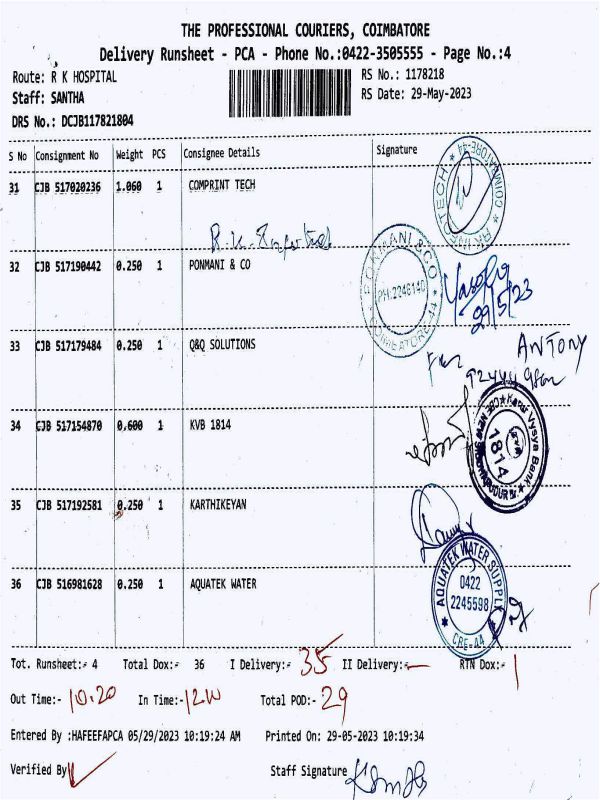 THE PROFESSIONAL COURIERS, COIMBATORE
Delivery Runsheet - PCA - Phone No.:0422-3505555 - Page No.:4
Route: R K HOSPITAL
RS No.: 1178218
Staff: SANTHA
RS Date: 29-May-2023
DRS No.: DCJB117821804
S No Consignment No Weight PCS Consignee Details Signature
31 CJB 517020236 1.060 1 COMPRINT TECH
32 CJB 517190442 0.250 1 PONMANI & CO
PONMANI & CO
PH:2246140
COIMBATORE-44
29/5/23
33 CJB 517179484 0.250 1 Q&Q SOLUTIONS
ANTONY
34 CJB 517154870 0.600 1 KVB 1814
Karur Vysya Bank
1814
35 CJB 517192581 0.250 1 KARTHIKEYAN
36 CJB 516981628 0.250 1 AQUATEK WATER
AQUATEK WATER SUPPLY
0422
2245598
CBE-44
Tot. Runsheet:- 4 Total Dox:- 36 I Delivery:- 35 II Delivery:- RTN Dox:- 1
Out Time:- 10.20 In Time:- Total POD:- 29
Entered By :HAFEEFAPCA 05/29/2023 10:19:24 AM Printed On: 29-05-2023 10:19:34
Verified By Staff Signature